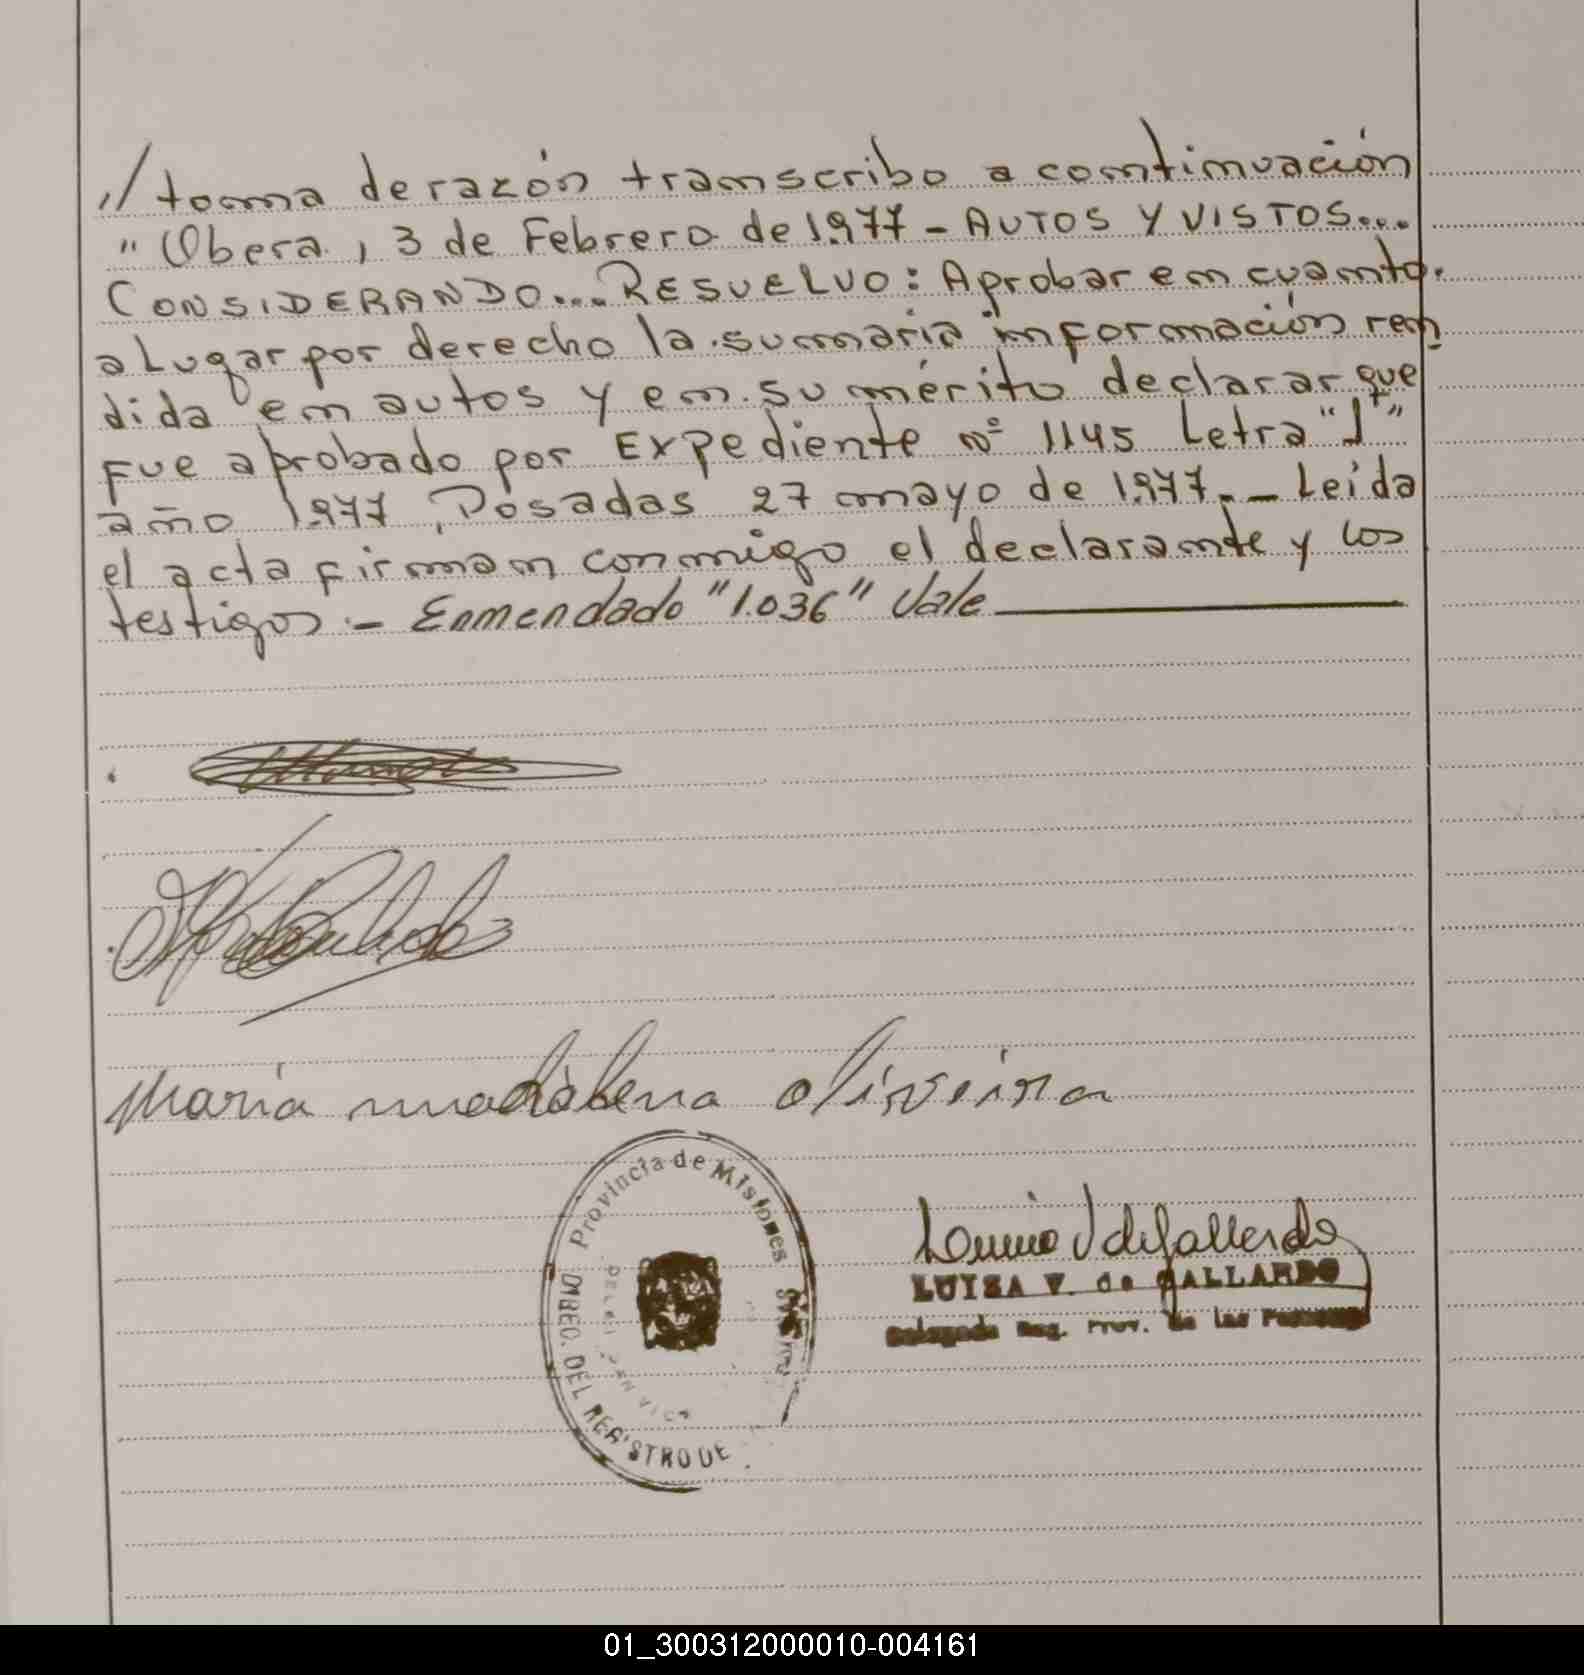 // toma de razón transcribo a continuación
" Obera, 3 de Febrero de 1.977 - AUTOS Y VISTOS...
CONSIDERANDO... RESUELVO: Aprobar en cuanto
a lugar por derecho la sumaria información ren
dida en autos y en su mérito declarar que
fue aprobado por Expediente Nº 1145 Letra "J"
año 1.977. Posadas 27 mayo de 1.977.- Leida
el acta firman conmigo el declarante y los
testigos.- Enmendado "1.036" Vale
Maria madalena oliveira
Provincia de Misiones
DIREC. DEL REGISTRO DE
LUISA V. de GALLARDO
Delegada Reg. Prov. de las Personas
01_300312000010-004161